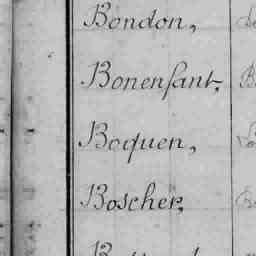 Bondon,
Bonenfant,
Boquen,
Boscher,